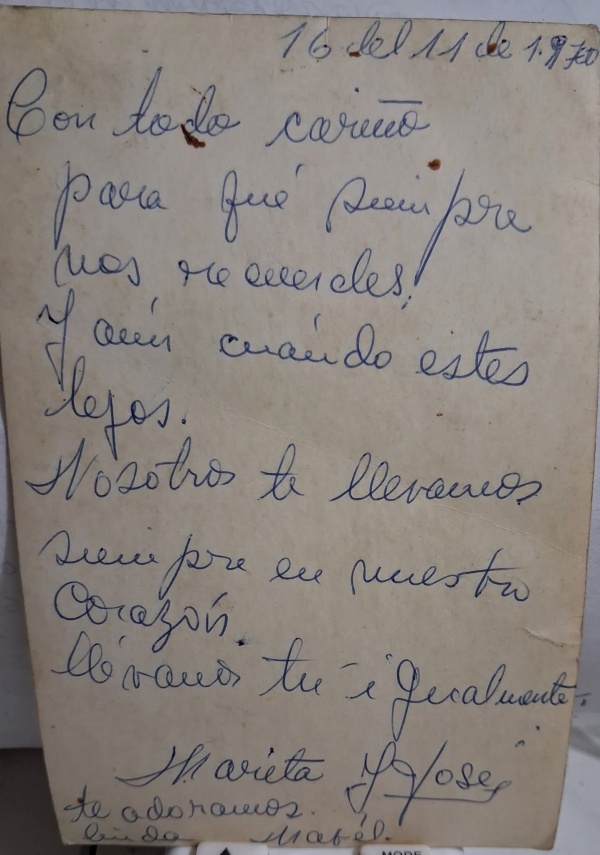 16 del 11 de 1.970
Con todo cariño
para qué siempre
nos recuerdes,
Y aún cuándo estes
lejos.
Nosotros te llevamos
siempre en nuestro
Corazón.
llévanos tu igualmente.
Marieta Y José
te adoramos.
linda Mabél.
MODE